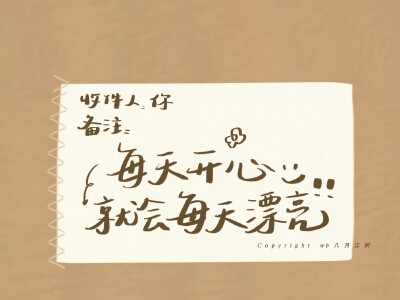 收件人:你
备注:
每天开心
就会每天漂亮
Copyright wb八月江树